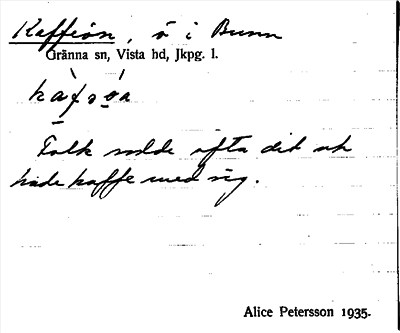 Kaffeön, ö i Bunn
Gränna sn, Vista hd, Jkpg. l.
Folk rodde ofta dit och
hade kaffe med sig.
Alice Petersson 1935.